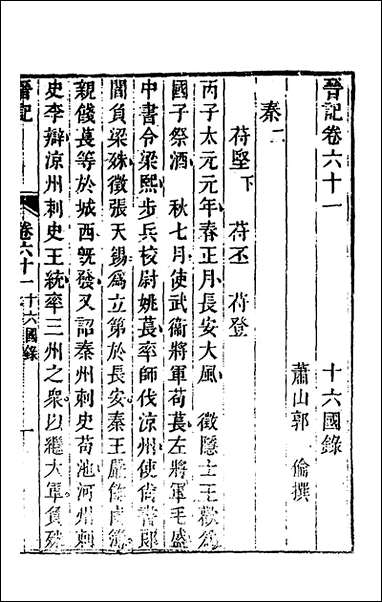 晉記卷六十一　十六國錄
蕭山郭　倫撰
秦二
苻堅下　苻丕　苻登
丙子太元元年春正月長安大風　徵隱士王歡爲
國子祭酒　秋七月使武衞將軍苟萇左將軍毛盛
中書令梁熙步兵校尉姚萇率師伐涼州使尙書郎
閻負梁殊徵張天錫爲立第於長安秦王嚴餙鹵簿
親餞萇等於城西旣發又詔秦州刺史苟池河州刺
史李辯涼州刺史王統率三州之衆以繼大軍負殊
晉記
卷六十一 十六國錄
一